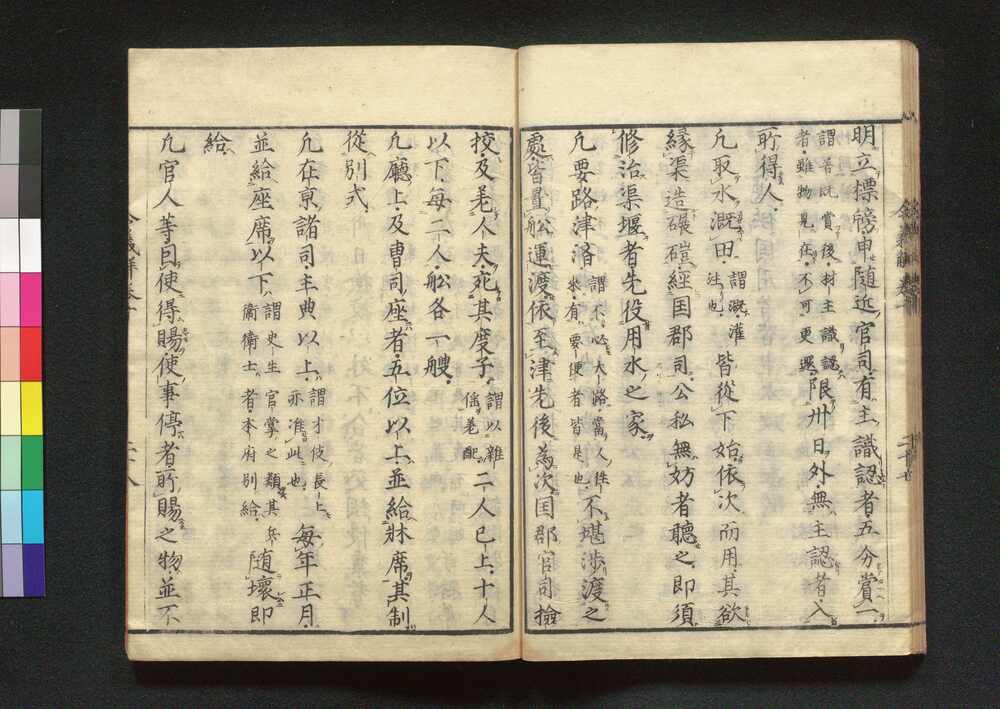 明立標牓申随近官司有主識認者五分賞一
謂若既賞後材主識認
者雖物見在不可更還
限卅日外無主認者入
所得人
凡取水漑田
謂漑灌
注也
皆從下始依次而用其欲
緣渠造碾磑經国郡司公私無妨者聽之即須
修治渠堰者先役用水之家
凡要路津済
謂不必大路當人徃
来有要便者皆是也
不堪渉渡之
處皆置舩運渡依至津先後為次国郡官司撿
挍及差人夫宛其度子
謂以雜
徭差配
二人已上十人
以下每二人舩各一艘
凡廳上及曹司座者五位以上並給牀席其制
從別式
凡在京諸司主典以上
謂才伎長上
亦准此也
每年正月
並給座席以下
謂史生官掌之類其兵
衞衞士者本府別給
随壞即
給
凡官人等因使得賜使事停者所賜之物並不